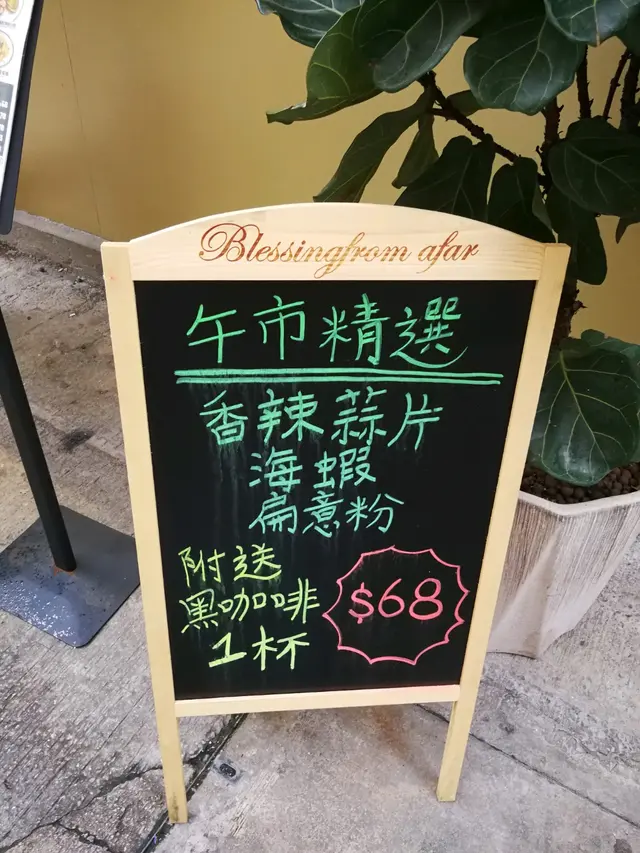 Blessingfrom afar
午市精選
香辣蒜片
海蝦
扁意粉
附送
黑咖啡
1杯
$68